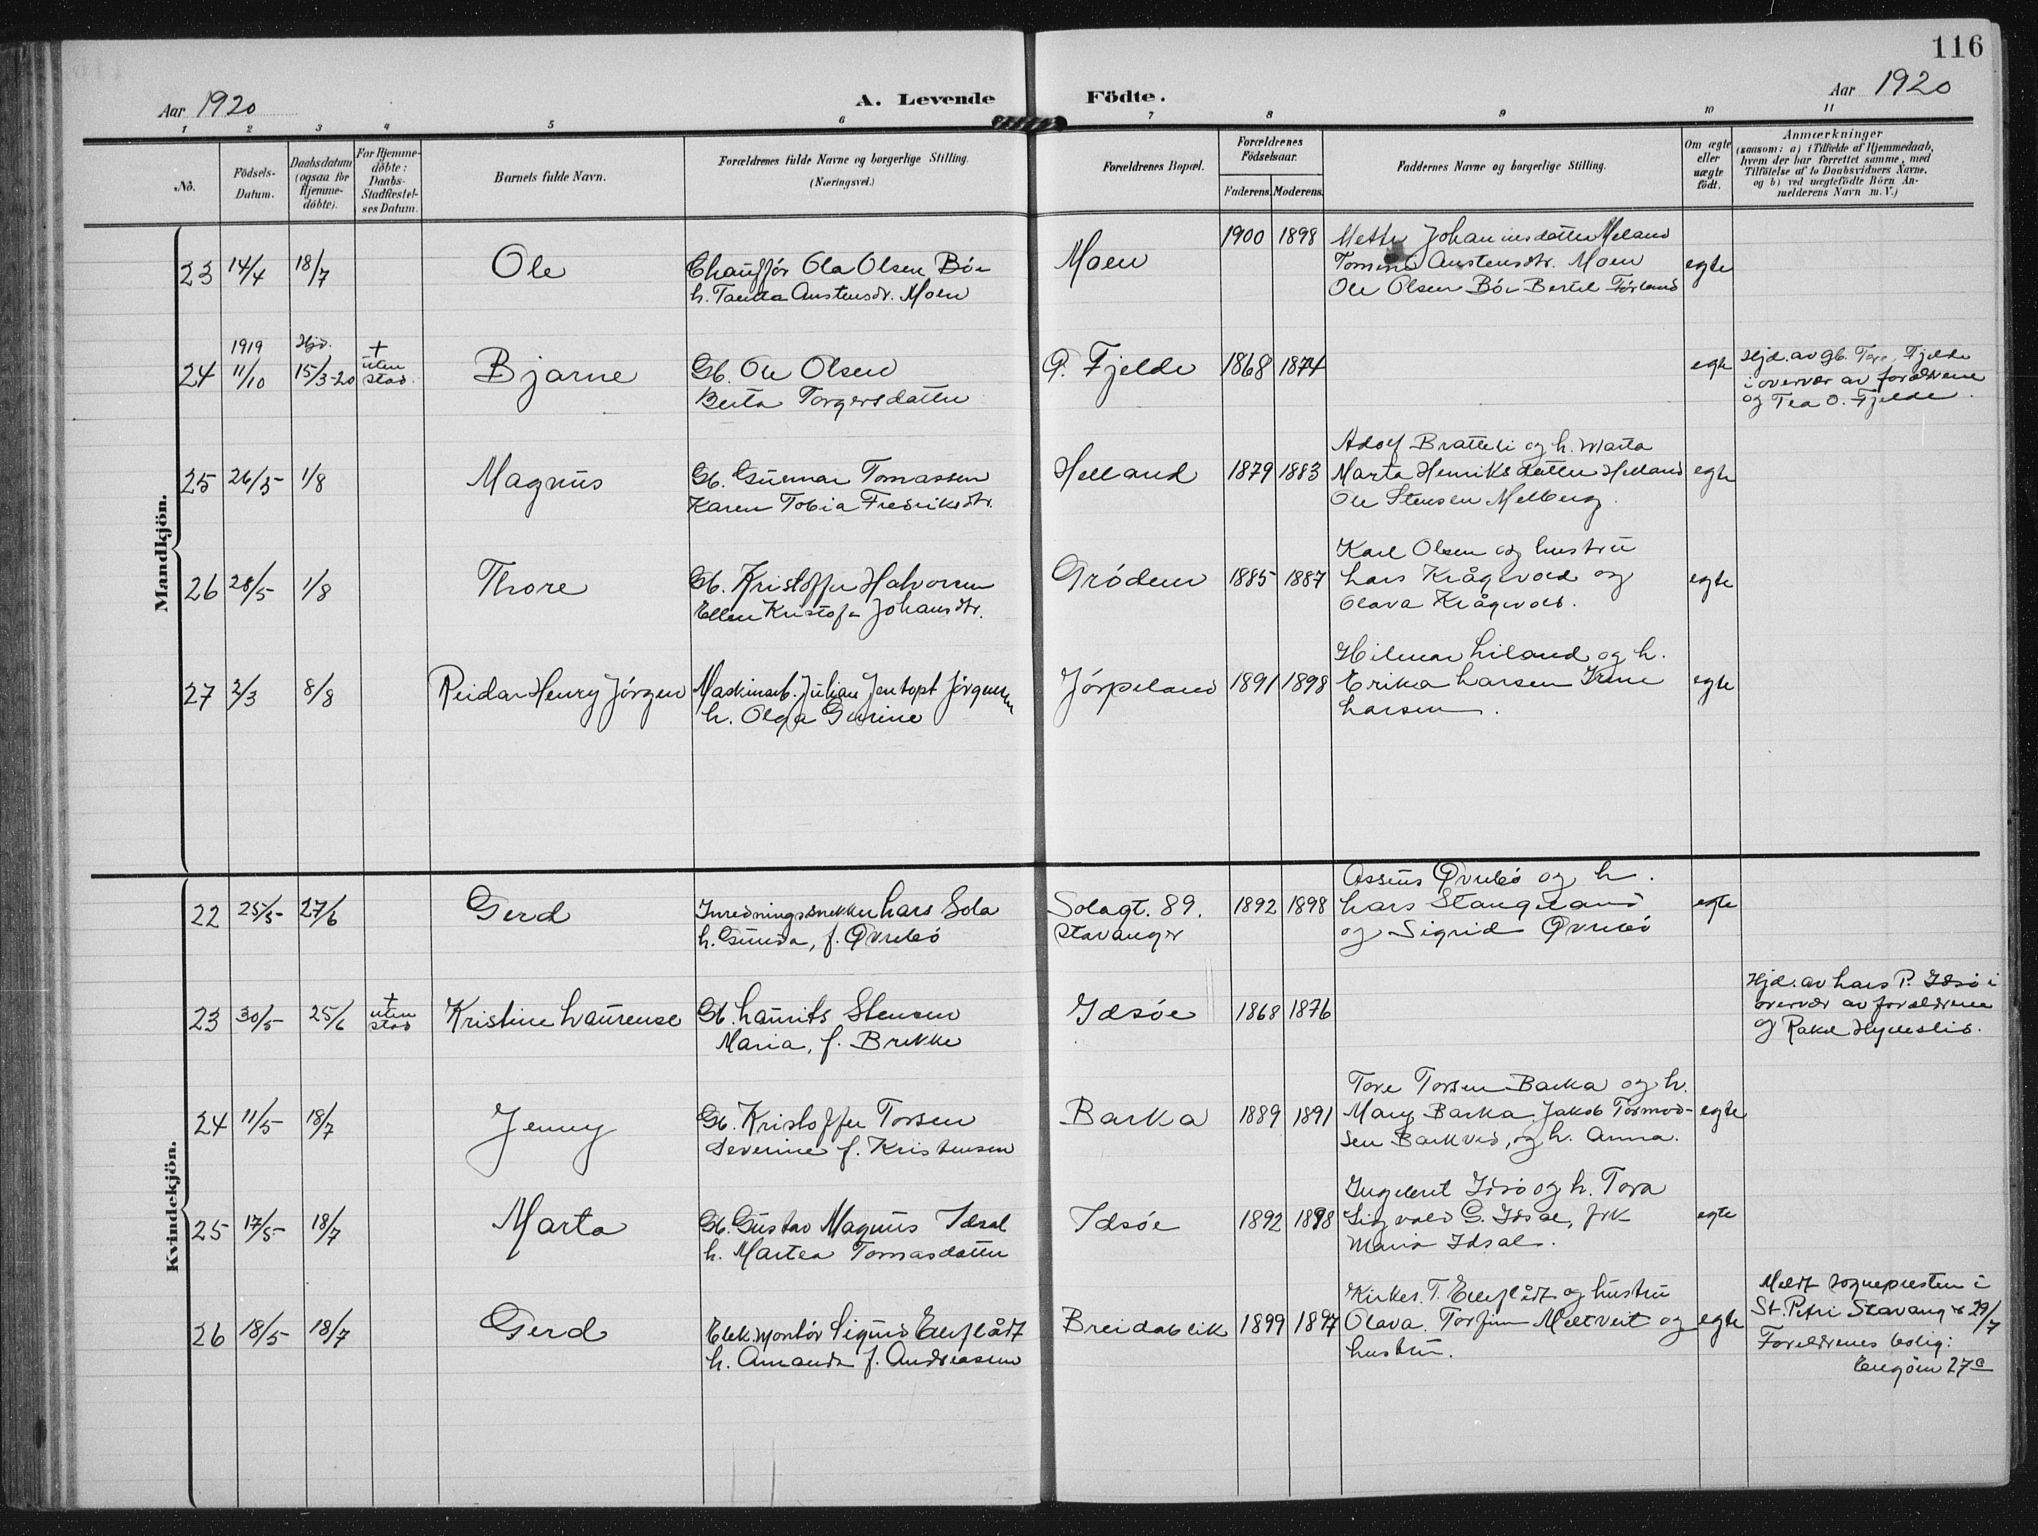 116
Aar 1920
A. Levende Födte.
Aar 1920
1 2 3 4 5 6 7 8 9 10 11
No.
Födsels-
Datum.
Daabsdatum
(ogsaa for
Hjemme-
döbte).
For Hjemme-
döbte:
Daabs-
Stadfæstel-
ses Datum.
Barnets fulde Navn.
Forældrenes fulde Navne og borgerlige Stilling.
(Næringsvei.)
Forældrenes Bopæl.
Forældrenes
Födselsaar.
Faderens. Moderens.
Faddernes Navne og borgerlige Stilling.
Om ægte
eller
uægte
födt.
Anmærkninger
(saasom: a) i Tilfælde af Hjemmedaab,
hvem der har forrettet samme, med
Tilföielse af to Daabsvidners Navne,
og b) ved uægtefödte Börn An-
melderens Navn m. V.)
Mandkjön.
23 14/4 18/7 Ole
Chauffør Ola Olsen Bøe
h. Tanda Austensdr. Moen
Moen 1900 1898
Mette Johannesdatter Meland
Austensdtr. Moen
Ole Olsen Bøe Bertel Førland
egte
24 1919 11/10 Hjd. 15/3-20 + uten stad.
Bjarne
Gb. Ole Olsen
Berta Torgersdatter
Ø. Fjelde 1868 1874 egte
Hjd. av gb. Tore Fjelde
i overvær av forældrene
og Tea O. Fjelde.
25 26/5 1/8 Magnus
Gb. Gunnar Tomassen
Karen Tobia Fredriksdtr.
Helland 1879 1883
Adolf Bratteli og h. Marta
Marta Henriksdatter Helland
Ole Stensen Melberg.
egte
26 28/5 1/8 Thore
Gb. Kristoffer Halvorsen
Ellen Kristofa Johansdtr.
Grødem 1885 1887
Karl Olsen og hustru
Lars Krågevold og
Olava Krågevold.
egte
27 2/3 8/8 Reidar Henry Jørgen
Maskinarb. Julian Jentoft Jørgensen
h. Olga Gurine
Jørpeland 1891 1898
Hilmar Liland og h.
Erika Larsen Irene
Larsen.
egte
Kvindekjön.
22 25/5 27/6 Gerd
Inredningssnekker Lars Sola
h. Gunda, f. Øvrebø
Solagt. 89.
Stavanger
1892 1898
Assius Øvrebø og h.
Lars Stangeland
og Sigrid Øvrebø
egte
23 30/5 25/6 + uten stad
Kristine Laurense
Gb. Laurits Stensen
Maria, f. Brekke
Idsøe 1868 1876
Hjd. av Lars P. Idsø i
overvær av forældrene
og Rakel
24 11/5 18/7 Jenny
Gb. Kristoffer Torsen
Severine f. Kristensen
Barka 1889 1891
Tore Torsen Barka og h.
Mary Barka. Jakob Tormod-
sen Barkved, og h. Anna.
egte
25 17/5 18/7 Marta
Gb. Gustav Magnus Idsal
h. Martea Tomasdatter
Idsøe 1892 1898
Ingebret Idsø og h. Tora
Sigvald G. Idsøe, frk
Maria Idsal.
egte
26 18/5 18/7 Gerd
Elek. montør Sigurd Elleflådt
h. Amanda f. Andreasen
Breidablik 1899 1897
Kirkes. T. Elleflådt og hustru
Olava. Torfinn Meltveit og
hustru.
egte
Meldt sognepresten i
St. Petri Stavanger 29/7
Foreldrenes bolig:
Engøen 27c